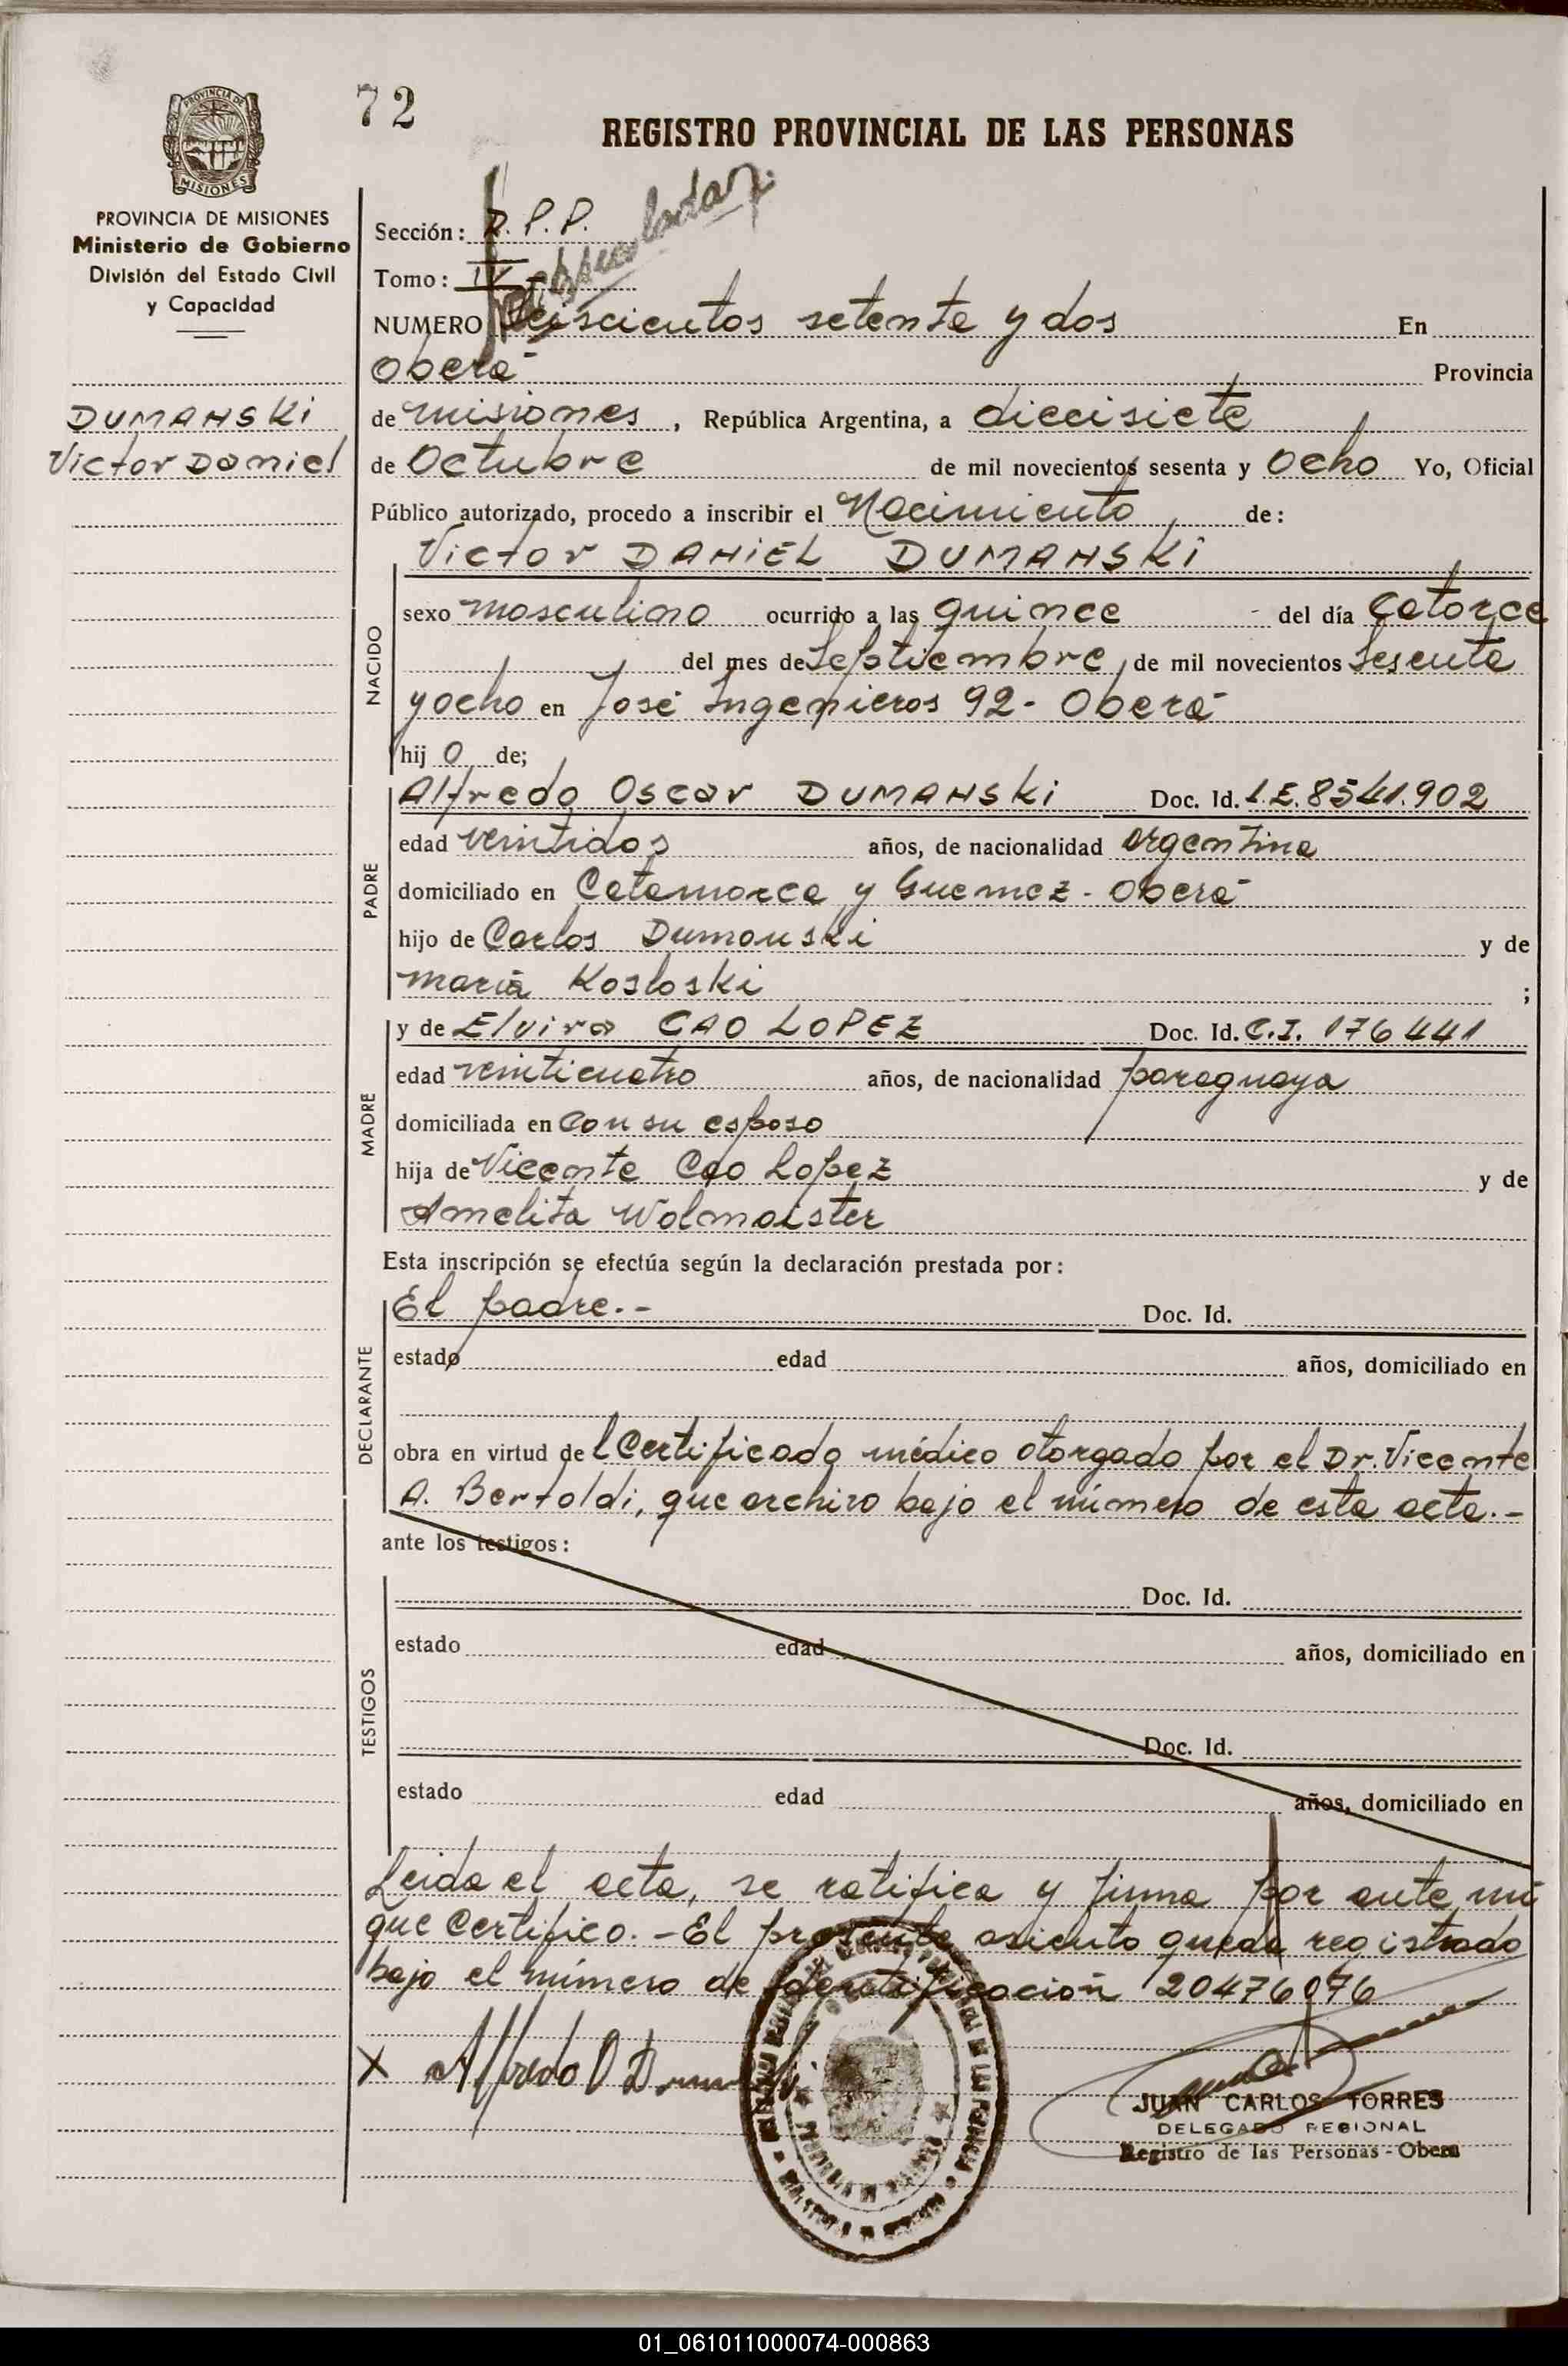 72
REGISTRO PROVINCIAL DE LAS PERSONAS
PROVINCIA DE MISIONES
PROVINCIA DE MISIONES
Ministerio de Gobierno
División del Estado Civil
y Capacidad
DUMANSKi
Victor Daniel
Sección: D. P. P.
Tomo: IV
NUMERO Seiscientos setenta y dos En
Oberá Provincia
de misiones, República Argentina, a diecisiete
de Octubre de mil novecientos sesenta y Ocho Yo, Oficial
Público autorizado, procedo a inscribir el Nacimiento, de:
Victor DANIEL DUMANSKi
NACIDO
sexo masculino ocurrido a las quince - del día Catorce
del mes de Septiembre, de mil novecientos Sesenta
y ocho en José Ingenieros 92- Oberá
hij o de;
PADRE
Alfredo Oscar DUMANSKi Doc. Id. L.E. 8541.902
edad veintidos años, de nacionalidad argentina
domiciliado en Catamarca y Guemez - Oberá
hijo de Carlos Dumanski y de
maria Kosloski ;
MADRE
y de Elvira CAO LOPEZ Doc. Id. C.I. 176441
edad veinticuatro años, de nacionalidad paraguaya
domiciliada en con su esposo
hija de Vicente Cao Lopez y de
Amelita Wolmaister
Esta inscripción se efectúa según la declaración prestada por:
DECLARANTE
El padre.- Doc. Id.
estado edad años, domiciliado en
obra en virtud de l Certificado médico otorgado por el Dr. Vicente
A. Bertoldi, que archivo bajo el número de esta acta.-
ante los testigos:
TESTIGOS
Doc. Id.
estado edad años, domiciliado en
Doc. Id.
estado edad años, domiciliado en
Leida el acta, se ratifica y firma por ante mi
que Certifico.-El presente asiento queda registrado
bajo el número de Identificación 20476076
X Alfredo O Dumanski
JUAN CARLOS TORRES
DELEGADO REGIONAL
Registro de las Personas - Obera
01_061011000074-000863